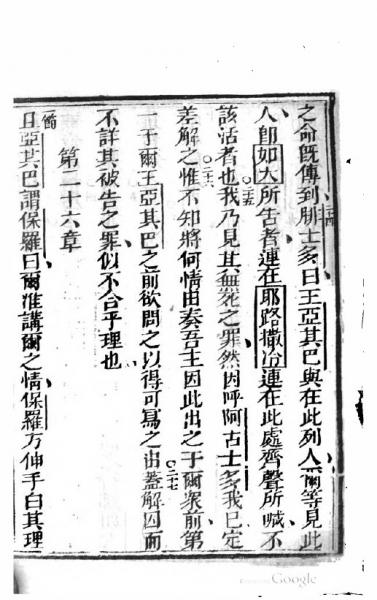 之命旣傳到腓士多曰王亞其巴與在此列人爾等見此
二四
人卽如大所告者連在耶路撒冷連在此處齊聲所喊不
○二五
該活者也我乃見其無死之罪然因呼阿古士多我已定
○二六
差解之惟不知將何情由奏吾主因此出之于爾衆前第
一于爾王亞其巴之前欲問之以得可寫之由蓋解囚而
○二七
不詳其被告之罪似不合乎理也
第二十六章
節
一
且亞其巴謂保羅曰爾准講爾之情保羅方伸手白其理
Google